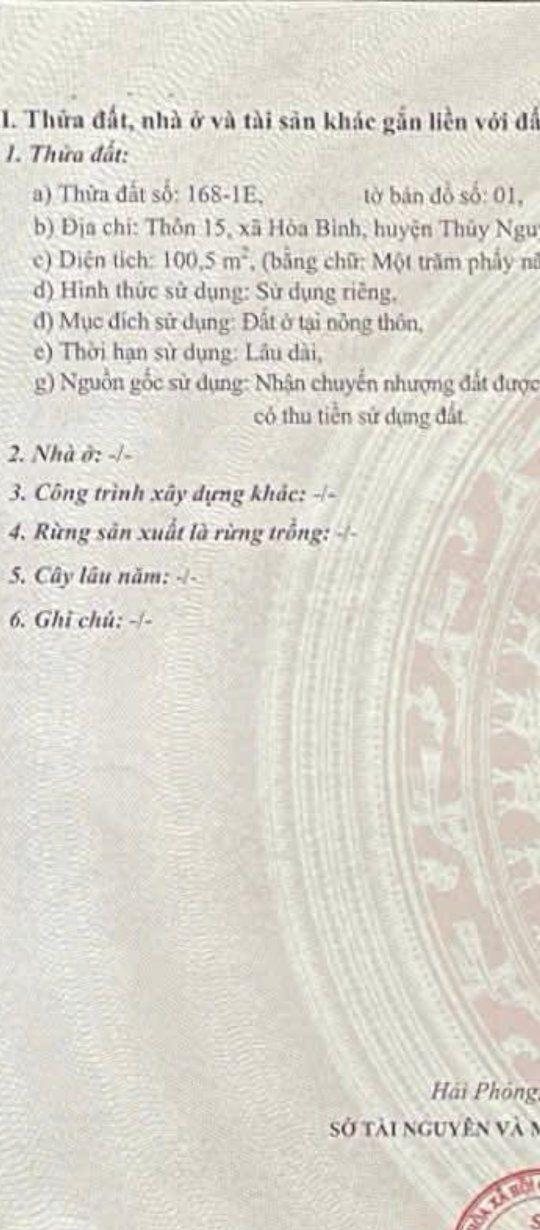 I. Thửa đất, nhà ở và tài sản khác gắn liền với đấ
1. Thửa đất:
a) Thửa đất số: 168-1E, tờ bản đồ số: 01,
b) Địa chỉ: Thôn 15, xã Hòa Bình, huyện Thủy Nguy
c) Diện tích: 100,5 m², (bằng chữ: Một trăm phẩy nă
d) Hình thức sử dụng: Sử dụng riêng,
đ) Mục đích sử dụng: Đất ở tại nông thôn,
e) Thời hạn sử dụng: Lâu dài,
g) Nguồn gốc sử dụng: Nhận chuyển nhượng đất được
có thu tiền sử dụng đất.
2. Nhà ở: -/-
3. Công trình xây dựng khác: -/-
4. Rừng sản xuất là rừng trồng: -/-
5. Cây lâu năm: -/-
6. Ghi chú: -/-
Hải Phòng,
SỞ TÀI NGUYÊN VÀ M
XÃ HỘI